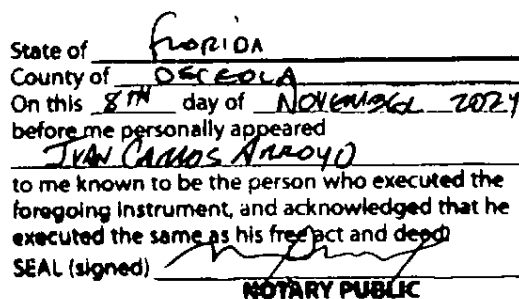 State of FLORIDA
County of OSCEOLA
On this 8TH day of NOVEMBER 2024
before me personally appeared
JUAN CARLOS ARROYO
to me known to be the person who executed the
foregoing instrument, and acknowledged that he
executed the same as his free act and deed.
SEAL (signed)
NOTARY PUBLIC